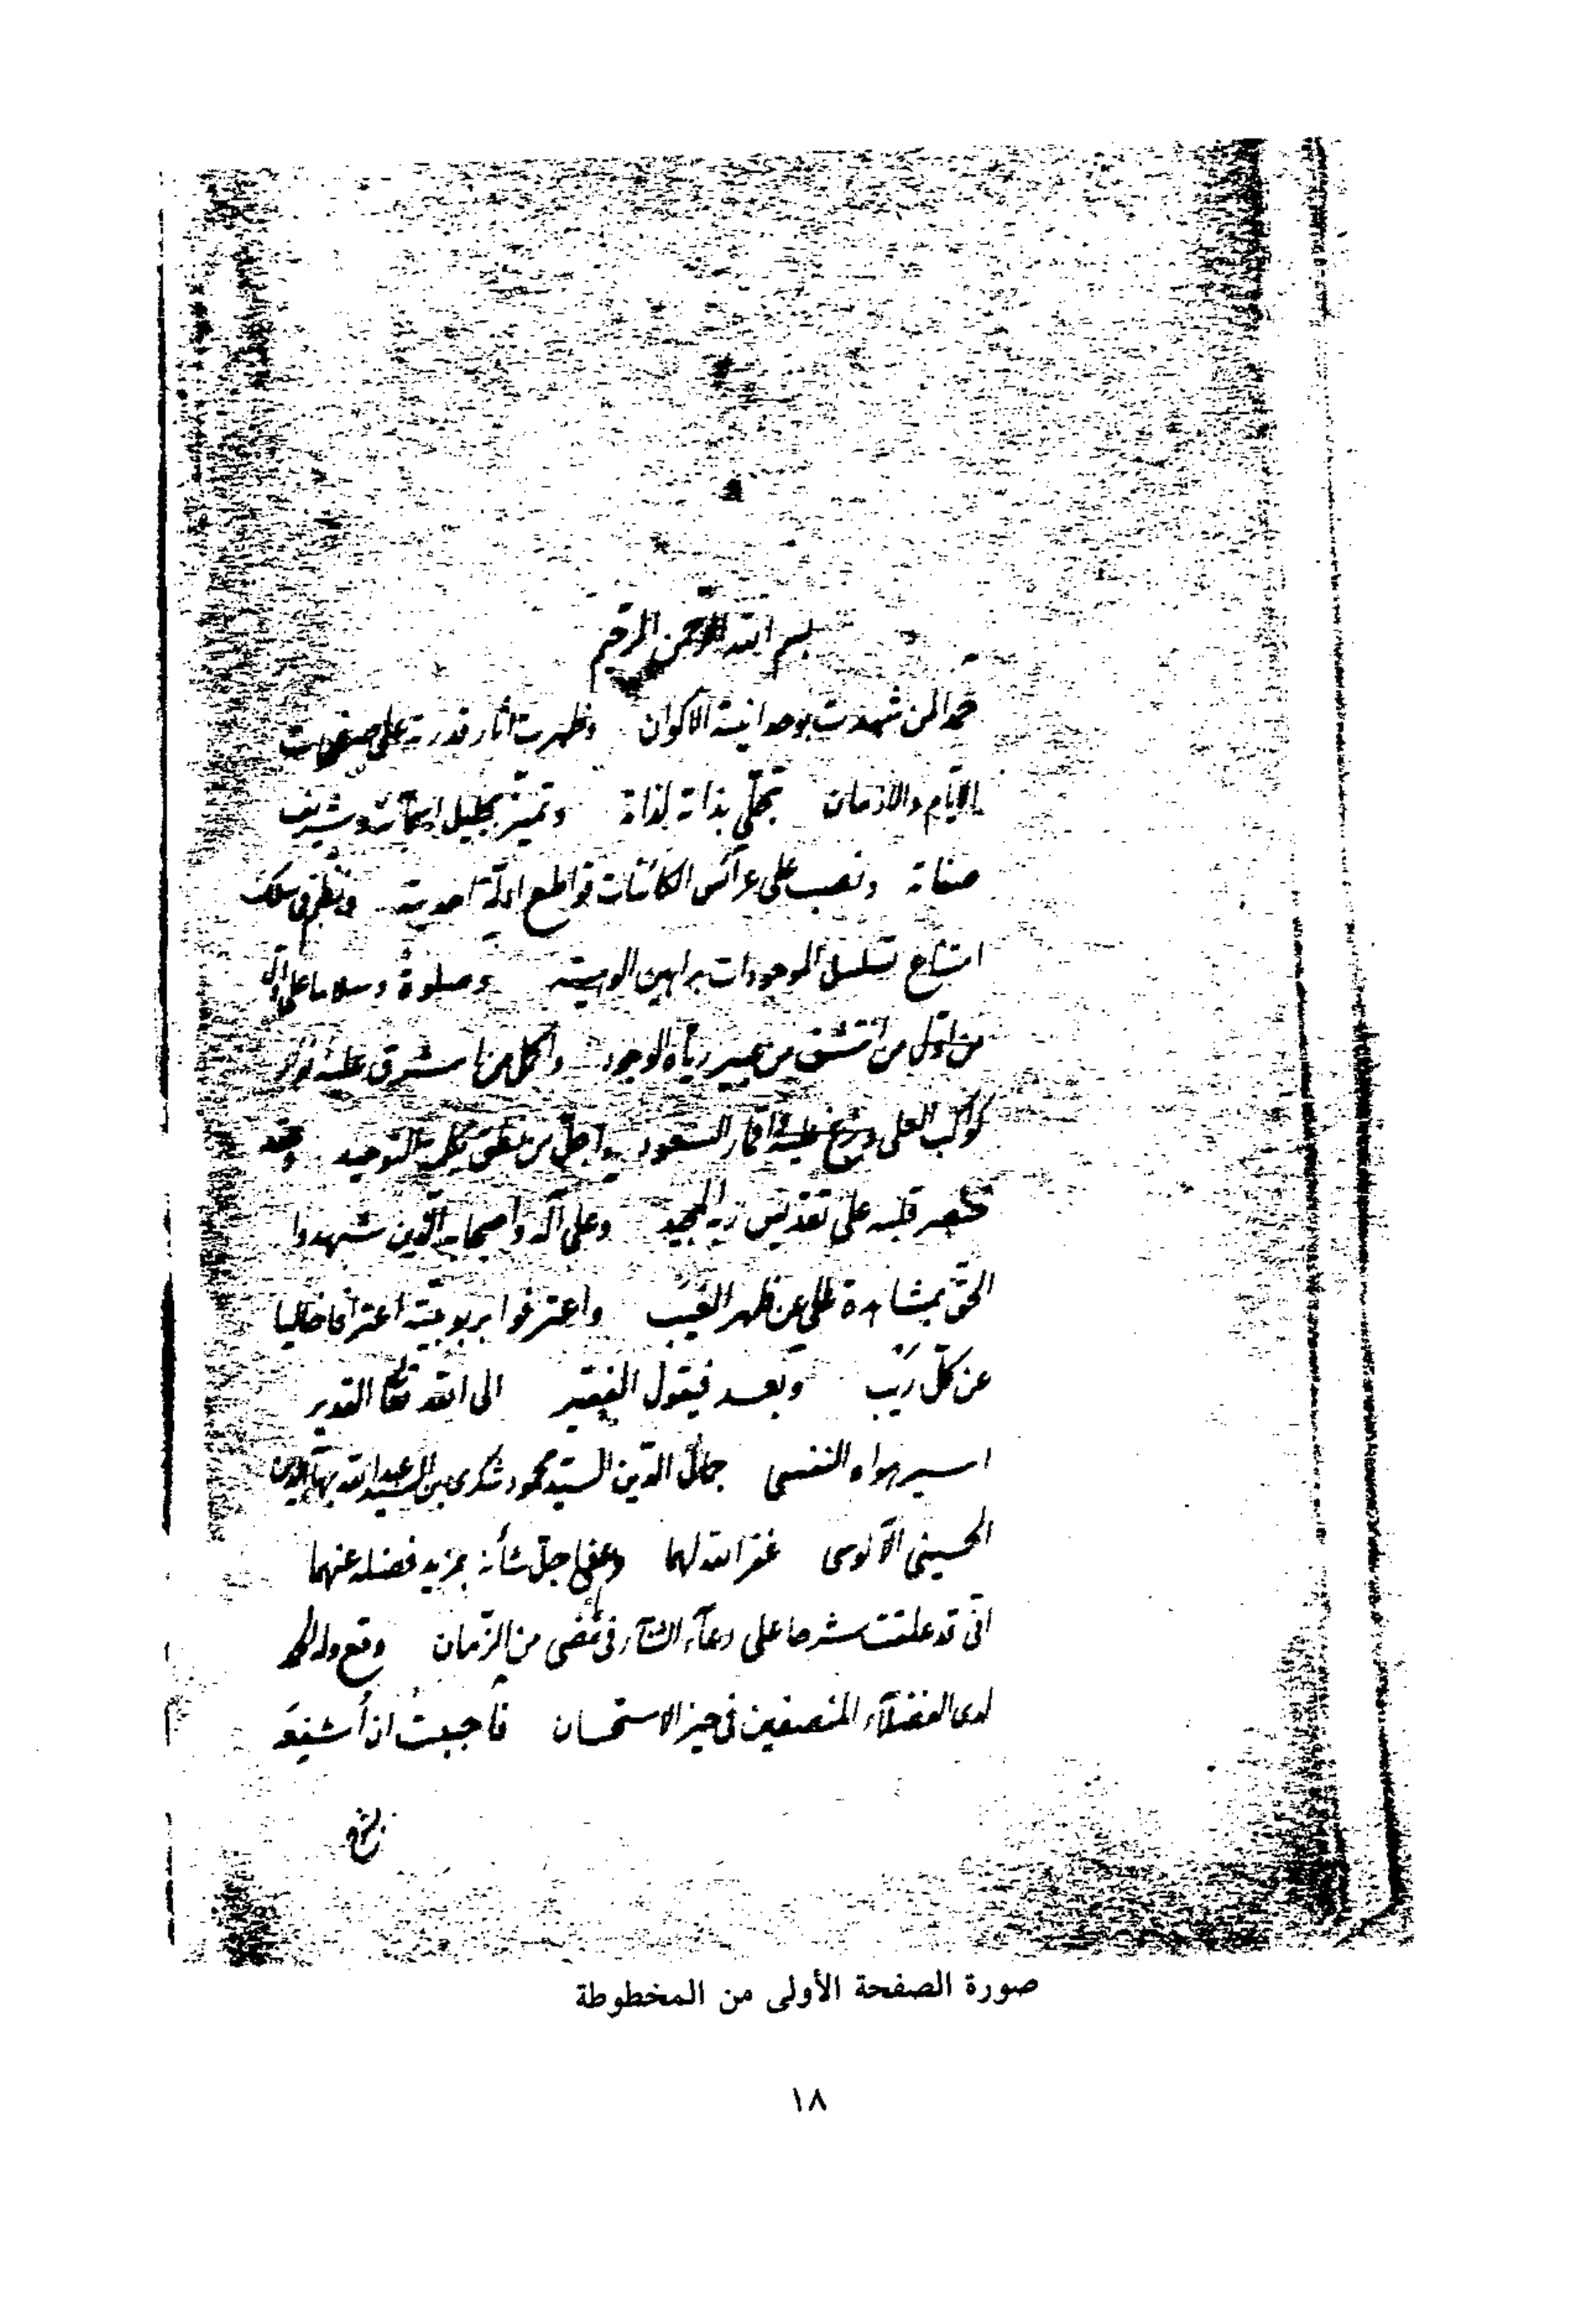 بسم الله الرحمن الرحيم
حمدا لمن شهدت بوحدانيته الاكوان وظهرت اثار قدرته على صفحات
الايام والازمان تجلى بذاته لذاته وتميز بجليل اسمائه وشريف
صفاته ونصب على عرائس الكائنات قواطع ادلة احديته ونظم فى سلك
امتناع تسلسل الموجودات براهين الوهيته وصلوة وسلاما على
من اول من انتشق من عبير رياه الوجود واكمل من اشرق عليه نور
كواكب العلى وبزغ عليه اقمار السعود واجل من نطق بكلمة التوحيد وقد
قلبه على تقديس ربه المجيد وعلى آله واصحابه الذين شهدوا
الحق بمشاهدة على عن ظهر الغيب واعترفوا بربوبيته اعترافا خاليا
عن كل ريب وبعد فيقول الفقير الى الله تعالى القدير
اسير هواه النفسى جمال الدين السيد محمود شكرى بن السيد عبد الله بهاء الدين
الحسينى الآلوسى غفر الله لهما وعفى جل شأنه بمزيد فضله عنهما
انى قد علقت شرحا على دعاء الثناء فى مضى من الزمان وقع وله الحمد
لدى الفضلاء المنصفين فى حيز الاستحسان فأحببت ان أشفعه
بشرح
صورة الصفحة الأولى من المخطوطة
١٨